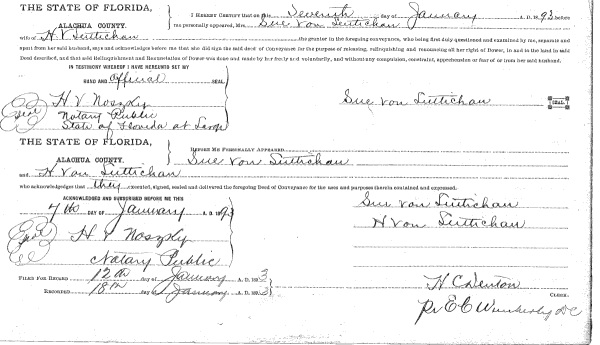 THE STATE OF FLORIDA,
ALACHUA COUNTY.
I HEREBY CERTIFY that on this Seventh day of January A. D. 1893 before
me personally appeared, Sue Von Suttichan
wife of H V Suttichan the grantor in the foregoing conveyance, who being first duly questioned and examined by me, separate and
apart from her said husband, says and acknowledges before me that she did sign the said deed of Conveyance for the purpose of releasing, relinquishing and renouncing all her right of Dower, in and to the land in said
Deed described, and that said Relinquishment and Renunciation of Dower was done and made by her freely and voluntarily, and without any compulsion, constraint, apprehension or fear of or from her said husband.
IN TESTIMONY WHEREOF I HAVE HEREUNTO SET MY
HAND AND Official SEAL.
H V Noszky
Seal Notary Public
State of Florida at Large
Sue von Suttichan SEAL
THE STATE OF FLORIDA,
ALACHUA COUNTY.
BEFORE ME PERSONALLY APPEARED
Sue Von Suttichan
and H Von Suttichan
who acknowledges that they executed, signed, sealed and delivered the foregoing Deed of Conveyance for the uses and purposes therein contained and expressed.
ACKNOWLEDGED AND SUBSCRIBED BEFORE ME THIS
7th DAY OF January A. D. 1893
Seal H V Noszky
Notary Public
Sue von Suttichan
H Von Suttichan
FILED FOR RECORD 12th day of January A. D. 1893
RECORDED 18th day of January A. D. 1893
H C Denton
CLERK.
Pr E C Wimberly DC